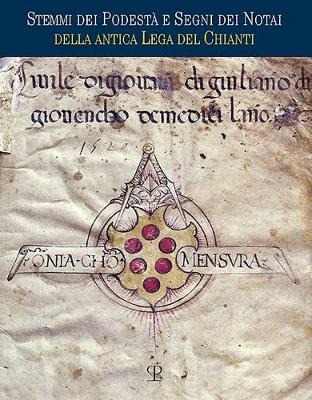 STEMMI DEI PODESTÀ E SEGNI DEI NOTAI
DELLA ANTICA LEGA DEL CHIANTI
di giuliano di
giovencho de medici lano
1522
ONIA·CHO MENSVRA